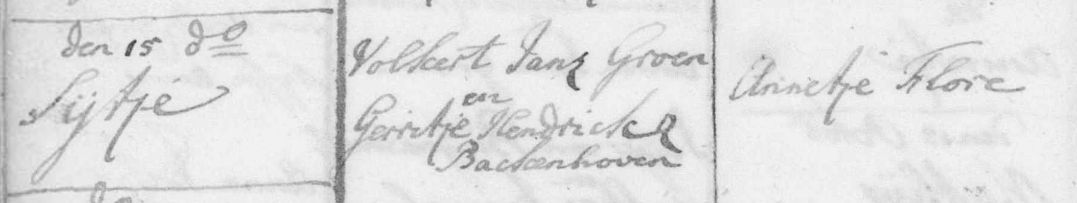 den 15 do
Sijtje
Volkert Janz Groen
en
Gerritje Hendrickz
Backenhoven
Annetje Flore